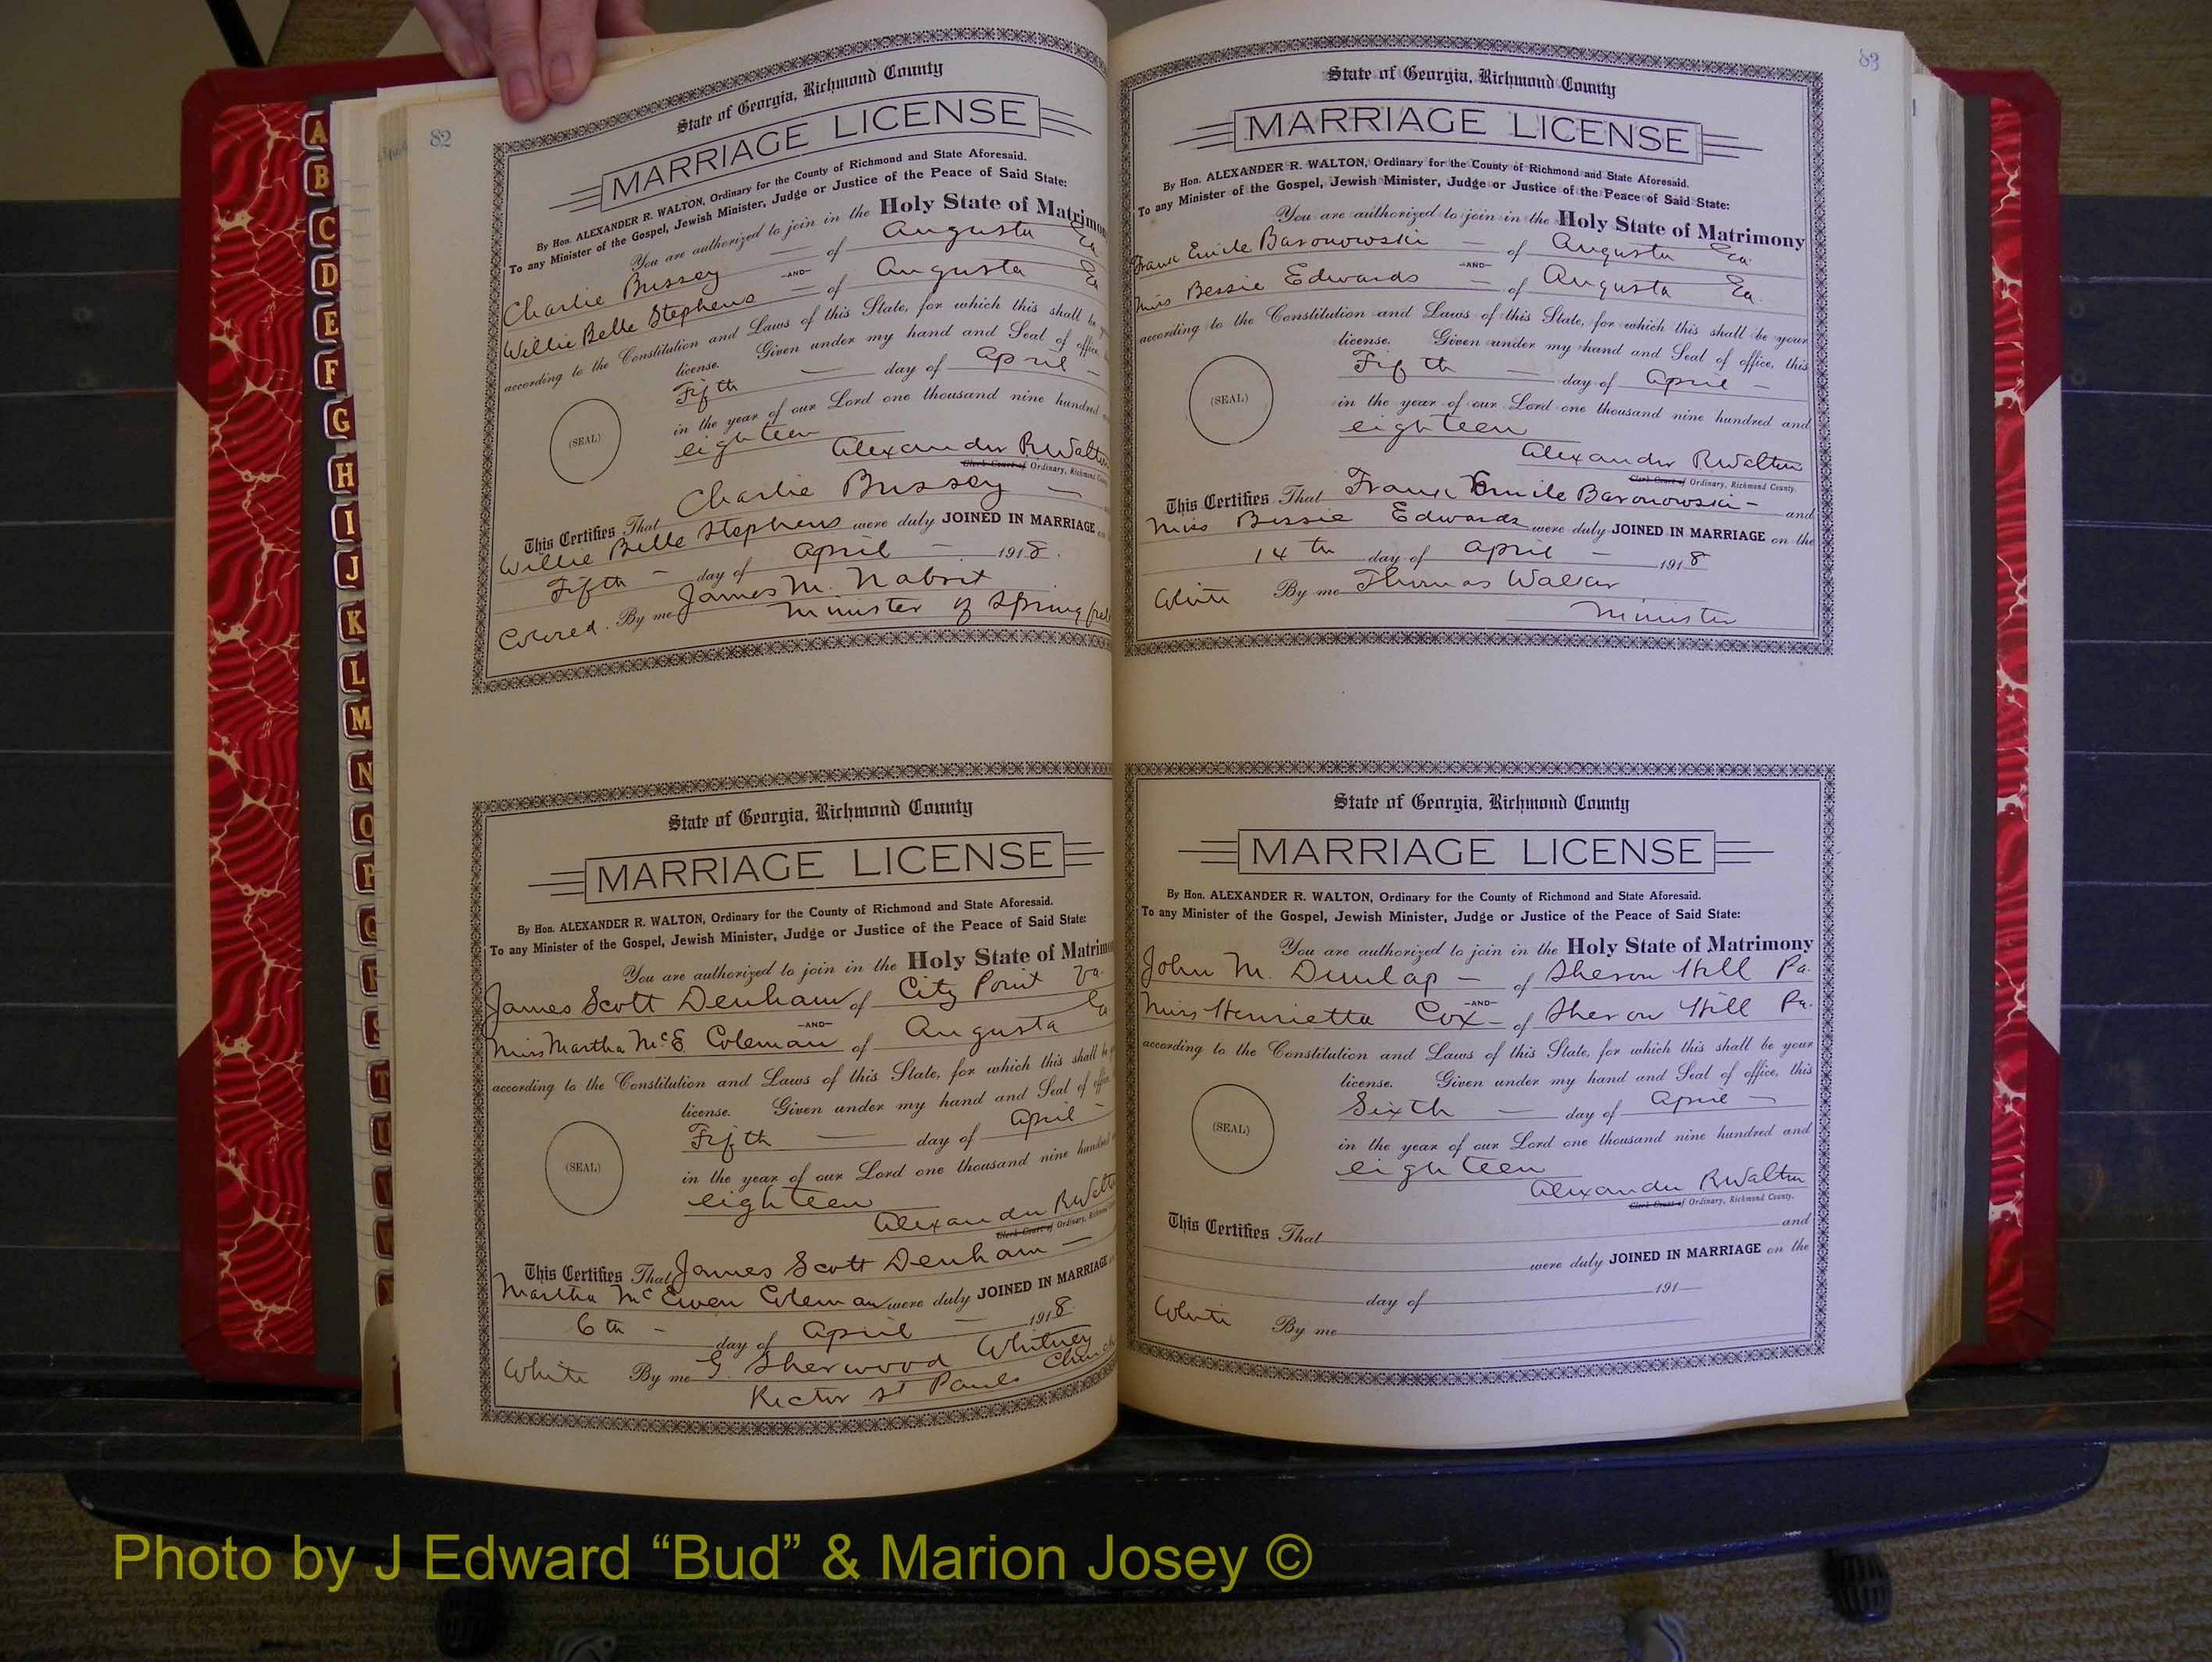 82
State of Georgia, Richmond County
MARRIAGE LICENSE
By Hon. ALEXANDER R. WALTON, Ordinary for the County of Richmond and State Aforesaid.
To any Minister of the Gospel, Jewish Minister, Judge or Justice of the Peace of Said State:
You are authorized to join in the Holy State of Matrimon
Charlie Bussey — of Augusta Ga
—AND—
Willie Belle Stephens — of Augusta Ga
according to the Constitution and Laws of this State, for which this shall be
license. Given under my hand and Seal of office,
Fifth — day of April —
(SEAL)
in the year of our Lord one thousand nine hundred
eighteen
Alexander R Walton
Clerk Court of Ordinary, Richmond County
This Certifies That Charlie Bussey —
Willie Belle Stephens were duly JOINED IN MARRIAGE
Fifth — day of April — 1918.
Colored. By me James M. Nabrit
Minister of Springfiel
State of Georgia, Richmond County
MARRIAGE LICENSE
By Hon. ALEXANDER R. WALTON, Ordinary for the County of Richmond and State Aforesaid.
To any Minister of the Gospel, Jewish Minister, Judge or Justice of the Peace of Said State:
You are authorized to join in the Holy State of Matrimo
James Scott Denham of City Point Va.
—AND—
Miss Martha McE Coleman of Augusta Ga
according to the Constitution and Laws of this State, for which this shall be
license. Given under my hand and Seal of office
Fifth — day of April —
(SEAL)
in the year of our Lord one thousand nine hundred
eighteen
Alexander R Walto
Clerk Court of Ordinary, Richmond
This Certifies That James Scott Denham —
Martha McEwen Coleman were duly JOINED IN MARRIAGE
6th — day of April — 1918.
White By me G. Sherwood Whitney
Rector St Pauls Church
83
State of Georgia, Richmond County
MARRIAGE LICENSE
By Hon. ALEXANDER R. WALTON, Ordinary for the County of Richmond and State Aforesaid.
To any Minister of the Gospel, Jewish Minister, Judge or Justice of the Peace of Said State:
You are authorized to join in the Holy State of Matrimony
Frank Emile Baronowski — of Augusta Ga.
—AND—
Miss Bessie Edwards — of Augusta Ga.
according to the Constitution and Laws of this State, for which this shall be your
license. Given under my hand and Seal of office, this
Fifth — day of April —
(SEAL)
in the year of our Lord one thousand nine hundred and
eighteen
Alexander R Walton
Clerk Court of Ordinary, Richmond County.
This Certifies That Frank Emile Baronowski — and
Miss Bessie Edwards were duly JOINED IN MARRIAGE on the
14th day of April — 1918
White By me Thomas Walker
Minister
State of Georgia, Richmond County
MARRIAGE LICENSE
By Hon. ALEXANDER R. WALTON, Ordinary for the County of Richmond and State Aforesaid.
To any Minister of the Gospel, Jewish Minister, Judge or Justice of the Peace of Said State:
You are authorized to join in the Holy State of Matrimony
John M. Dunlap — of Sharon Hill Pa.
—AND—
Miss Henrietta Cox — of Sharon Hill Pa.
according to the Constitution and Laws of this State, for which this shall be your
license. Given under my hand and Seal of office, this
Sixth — day of April —
(SEAL)
in the year of our Lord one thousand nine hundred and
eighteen
Alexander R Walton
Clerk Court of Ordinary, Richmond County.
This Certifies That and
were duly JOINED IN MARRIAGE on the
day of 191
White By me
A
B
C
D
E
F
G
H
I
J
K
L
M
N
O
P
Q
R
S
T
U
V
W
Photo by J Edward “Bud” & Marion Josey ©